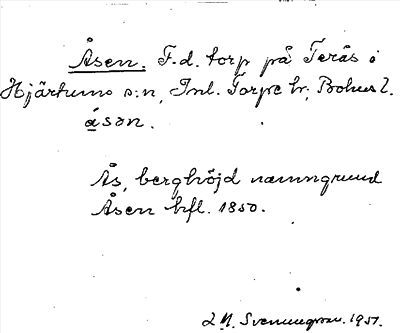 Åsen. F.d. torp på Terås i
Hjärtums s:n, Inl. Torpe hr; Bohus l.
åsən.
Ås, berghöjd namngrund
Åsen hfl. 1850.
Svenungsson. 1951.